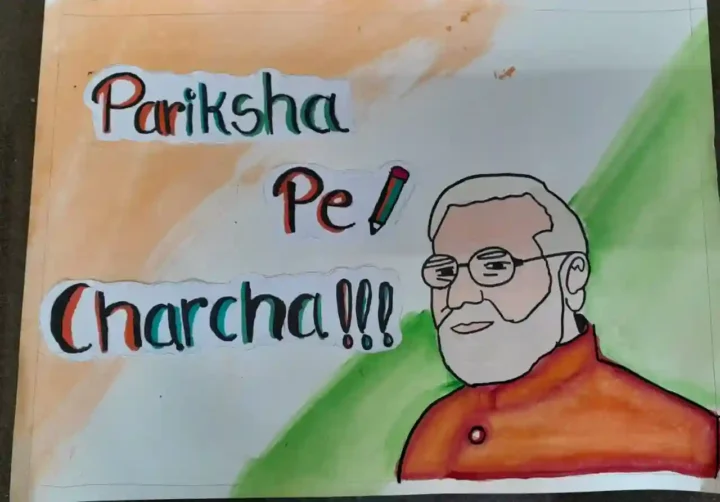 Pariksha
Pe
Charcha!!!